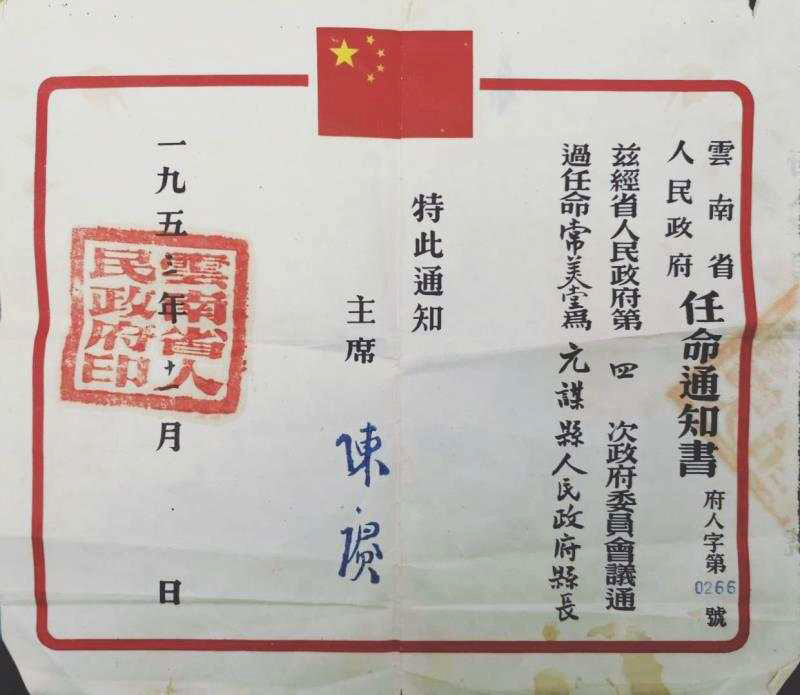 雲南省
人民政府
任命通知書
府人字第0266號
兹經省人民政府第四次政府委員會議通
過任命常美堂爲元謀縣人民政府縣長
特此通知
主席 陳賡
一九五三年十一月 日
雲南省人
民政府印